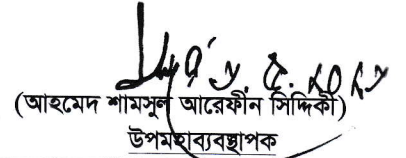 (আহমেদ শামসুল আরেফীন সিদ্দিকী)
উপমহাব্যবস্থাপক